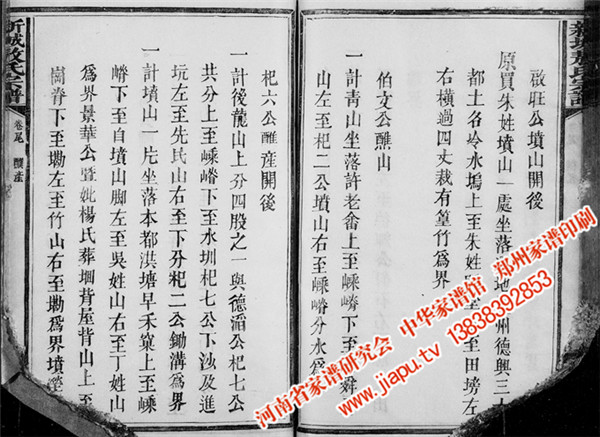 啟旺公墳山開後
原買朱姓墳山一處坐落 地 州德興三十
都土名冷水塢上至朱姓 至田塝左
右橫過四丈栽有篁竹為界
伯文公醮山
一計青山坐落許老畬上至嵊嶙下至
山左至杞二公墳山右至嵊嶙分水為
新城 氏宗譜
卷尾 醮產
杞六公醮產開後
一計後龍山上分四股之一與德滔公杞七公
共分上至嵊嶙下至水圳杞七公下沙及進
坑左至先民山右至下分杞二公鋤溝為界
一計墳山一片坐落本都洪塘早禾 上至嵊
嶙下至自墳山脚左至吳姓山右至丁姓山
為界景華公暨妣楊氏葬堌背屋背山上至
崗脊下至墈左至竹山右至墈為界墳塋
河南省家谱研究会 中华家谱馆 郑州家谱印刷
www.jiapu.tv 13838392853